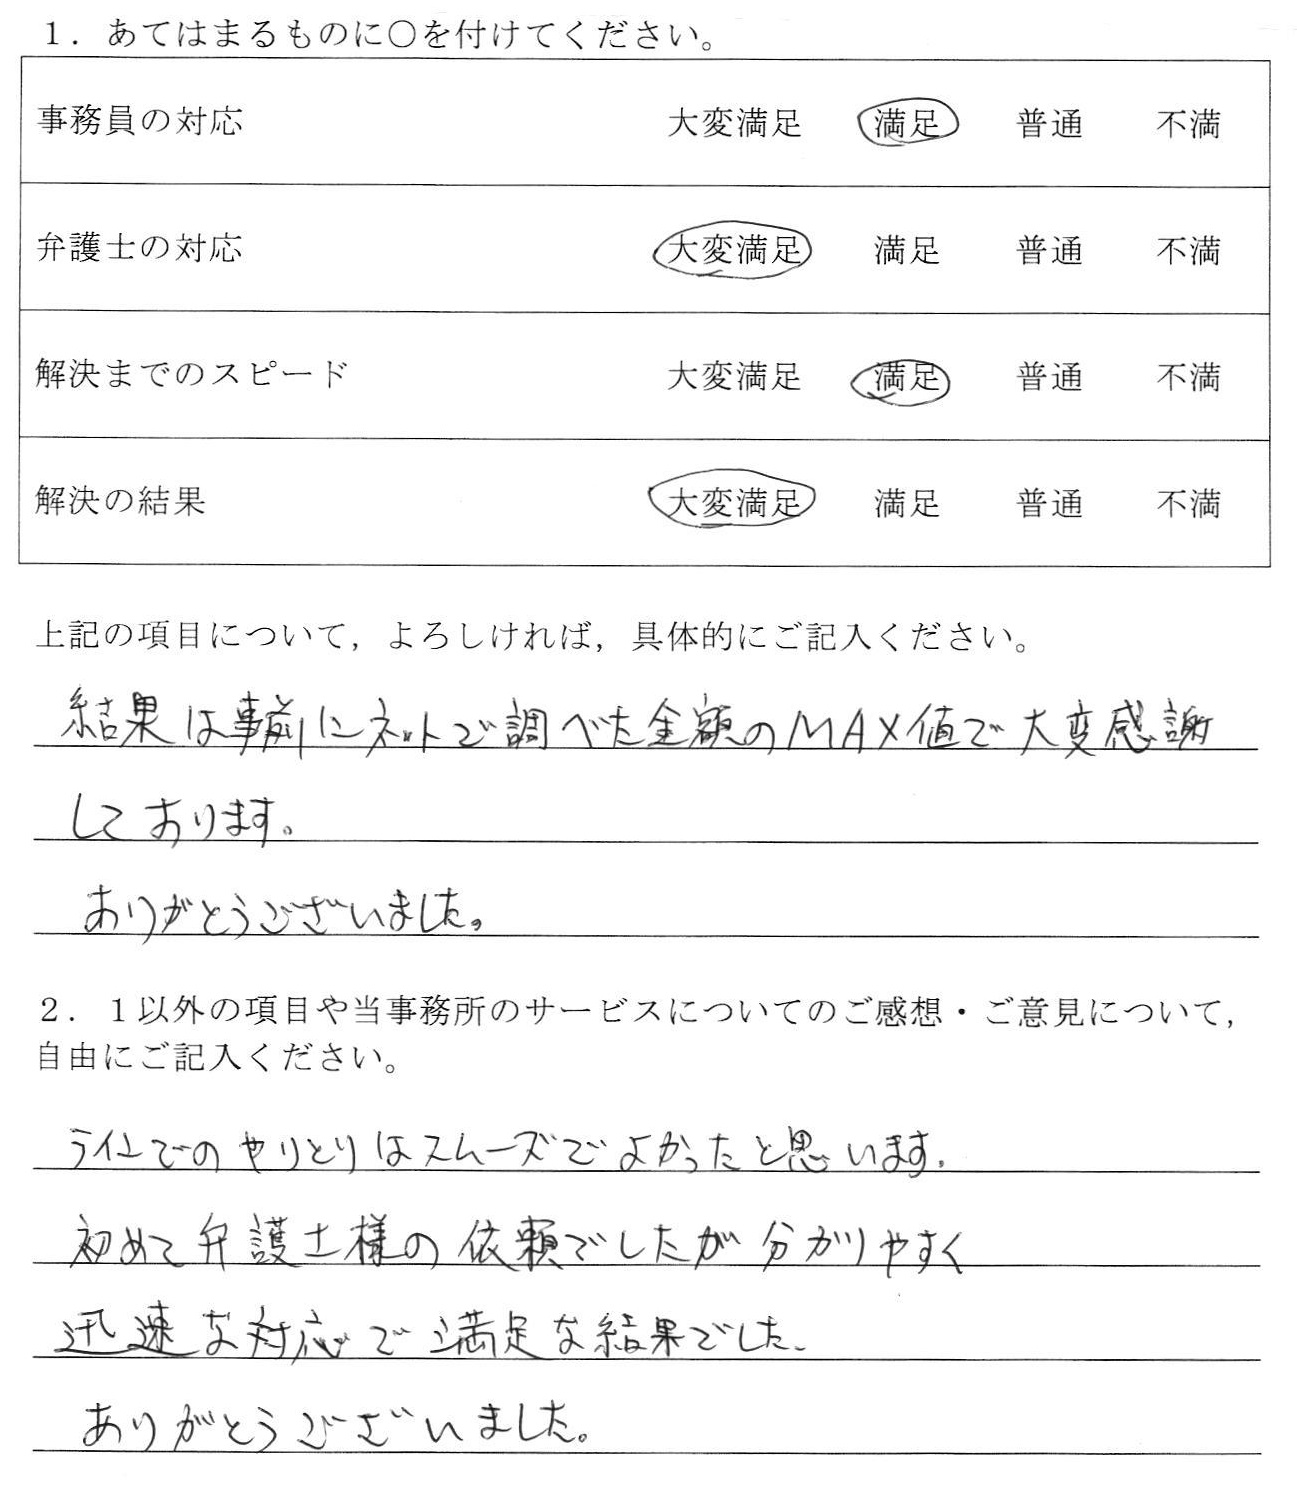 １．あてはまるものに○を付けてください。
事務員の対応 大変満足 満足 普通 不満
弁護士の対応 大変満足 満足 普通 不満
解決までのスピード 大変満足 満足 普通 不満
解決の結果 大変満足 満足 普通 不満
上記の項目について，よろしければ，具体的にご記入ください。
結果は事前にネットで調べた金額のMAX値で大変感謝
しております。
ありがとうございました。
２．１以外の項目や当事務所のサービスについてのご感想・ご意見について，
自由にご記入ください。
ラインでのやりとりはスムーズでよかったと思います。
初めて弁護士様の依頼でしたが分かりやすく
迅速な対応で満足な結果でした。
ありがとうございました。